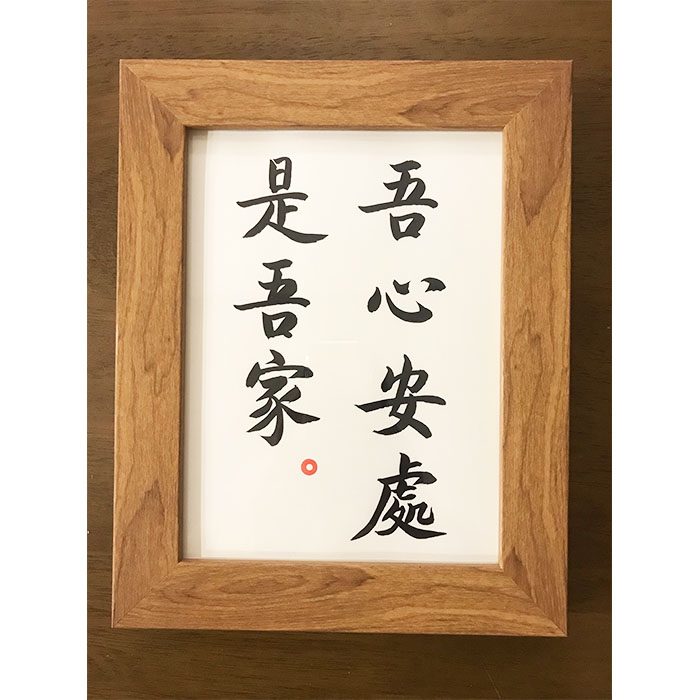 吾心安處
是吾家